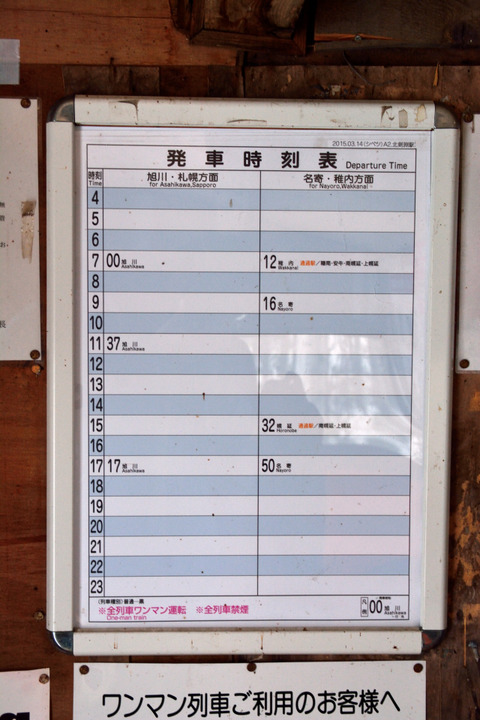 2015.03.14(シベツ)A2_北剣淵駅
発車時刻表 Departure Time
時刻 Time
旭川・札幌方面 for Asahikawa,Sapporo
名寄・稚内方面 for Nayoro,Wakkanai
4
5
6
7 00 旭川 Asahikawa 12 稚内 Wakkanai
8
9 16 名寄 Nayoro
10
11 37 旭川 Asahikawa
12
13
14
15 32 幌延 Horonobe 通過駅／南幌延・上幌延
16
17 17 旭川 Asahikawa 50 名寄 Nayoro
18
19
20
21
22
23
(列車種別)普通…黒
※全列車ワンマン運転 ※全列車禁煙
One-man train
凡例 00 旭川 Asahikawa
ワンマン列車ご利用のお客様へ
長